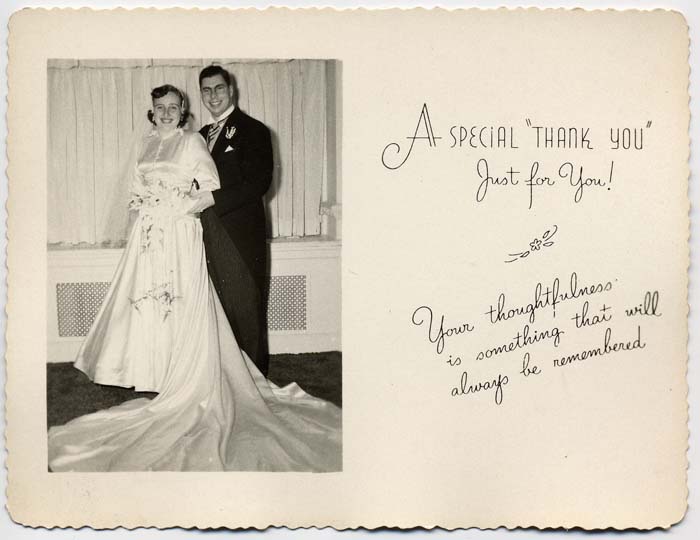 A SPECIAL "THANK YOU"
Just for You!
Your thoughtfulness
is something that will
always be remembered